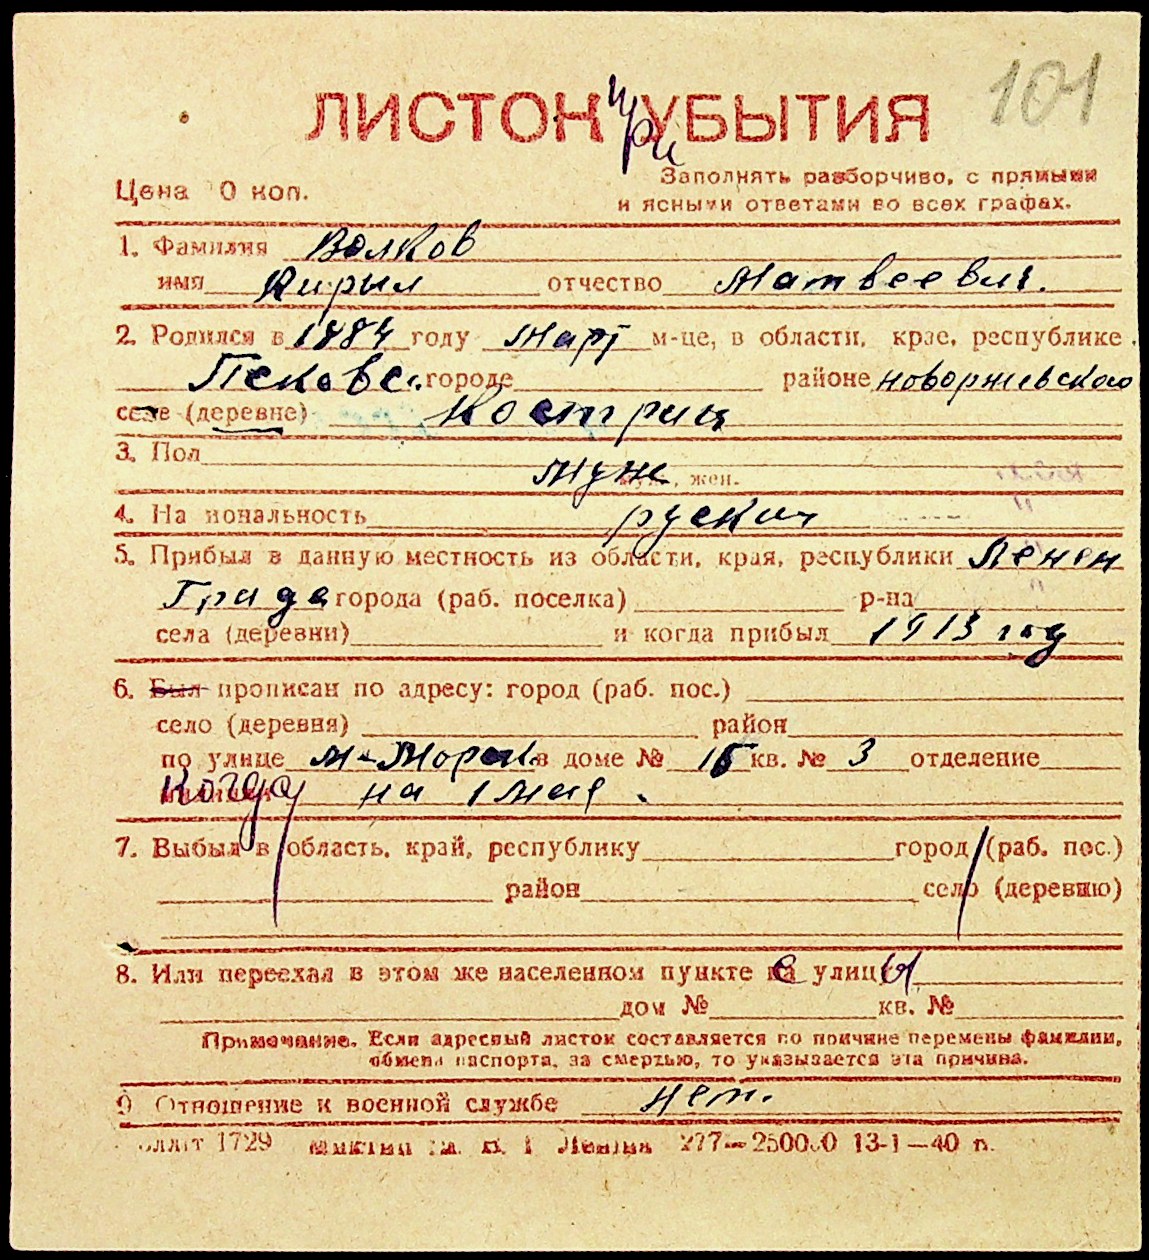 101
ЛИСТОК УБЫТИЯ
при
Цена 0 коп.
Заполнять разборчиво, с прямыми
и ясными ответами во всех графах.
1. Фамилия Волков
имя Кирыл отчество Матвеевич.
2. Родился в 1884 году Март м-це, в области, крае, республике
Псковс. городе районе новоржевского
селе (деревне) Кострица
3. Пол Муж , жен.
4. На иональность руский
5. Прибыл в данную местность из области, края, республики Ленен
Града города (раб. поселка) р-на
села (деревни) и когда прибыл 1913 год
6. Был прописан по адресу: город (раб. пос.)
село (деревня) район
по улице в доме № 15 кв. № 3 отделение
Когда на 1 мая.
7. Выбыл в область, край, республику город (раб. пос.)
район село (деревню)
8. Или переехал в этом же населенном пункте с улицы
дом № кв. №
Примечание. Если адресный листок составляется по причине перемены фамилии,
обмена паспорта, за смертью, то указывается эта причина.
9 Отношение к военной службе нет.
1729 277—250000 13-1—40 г.